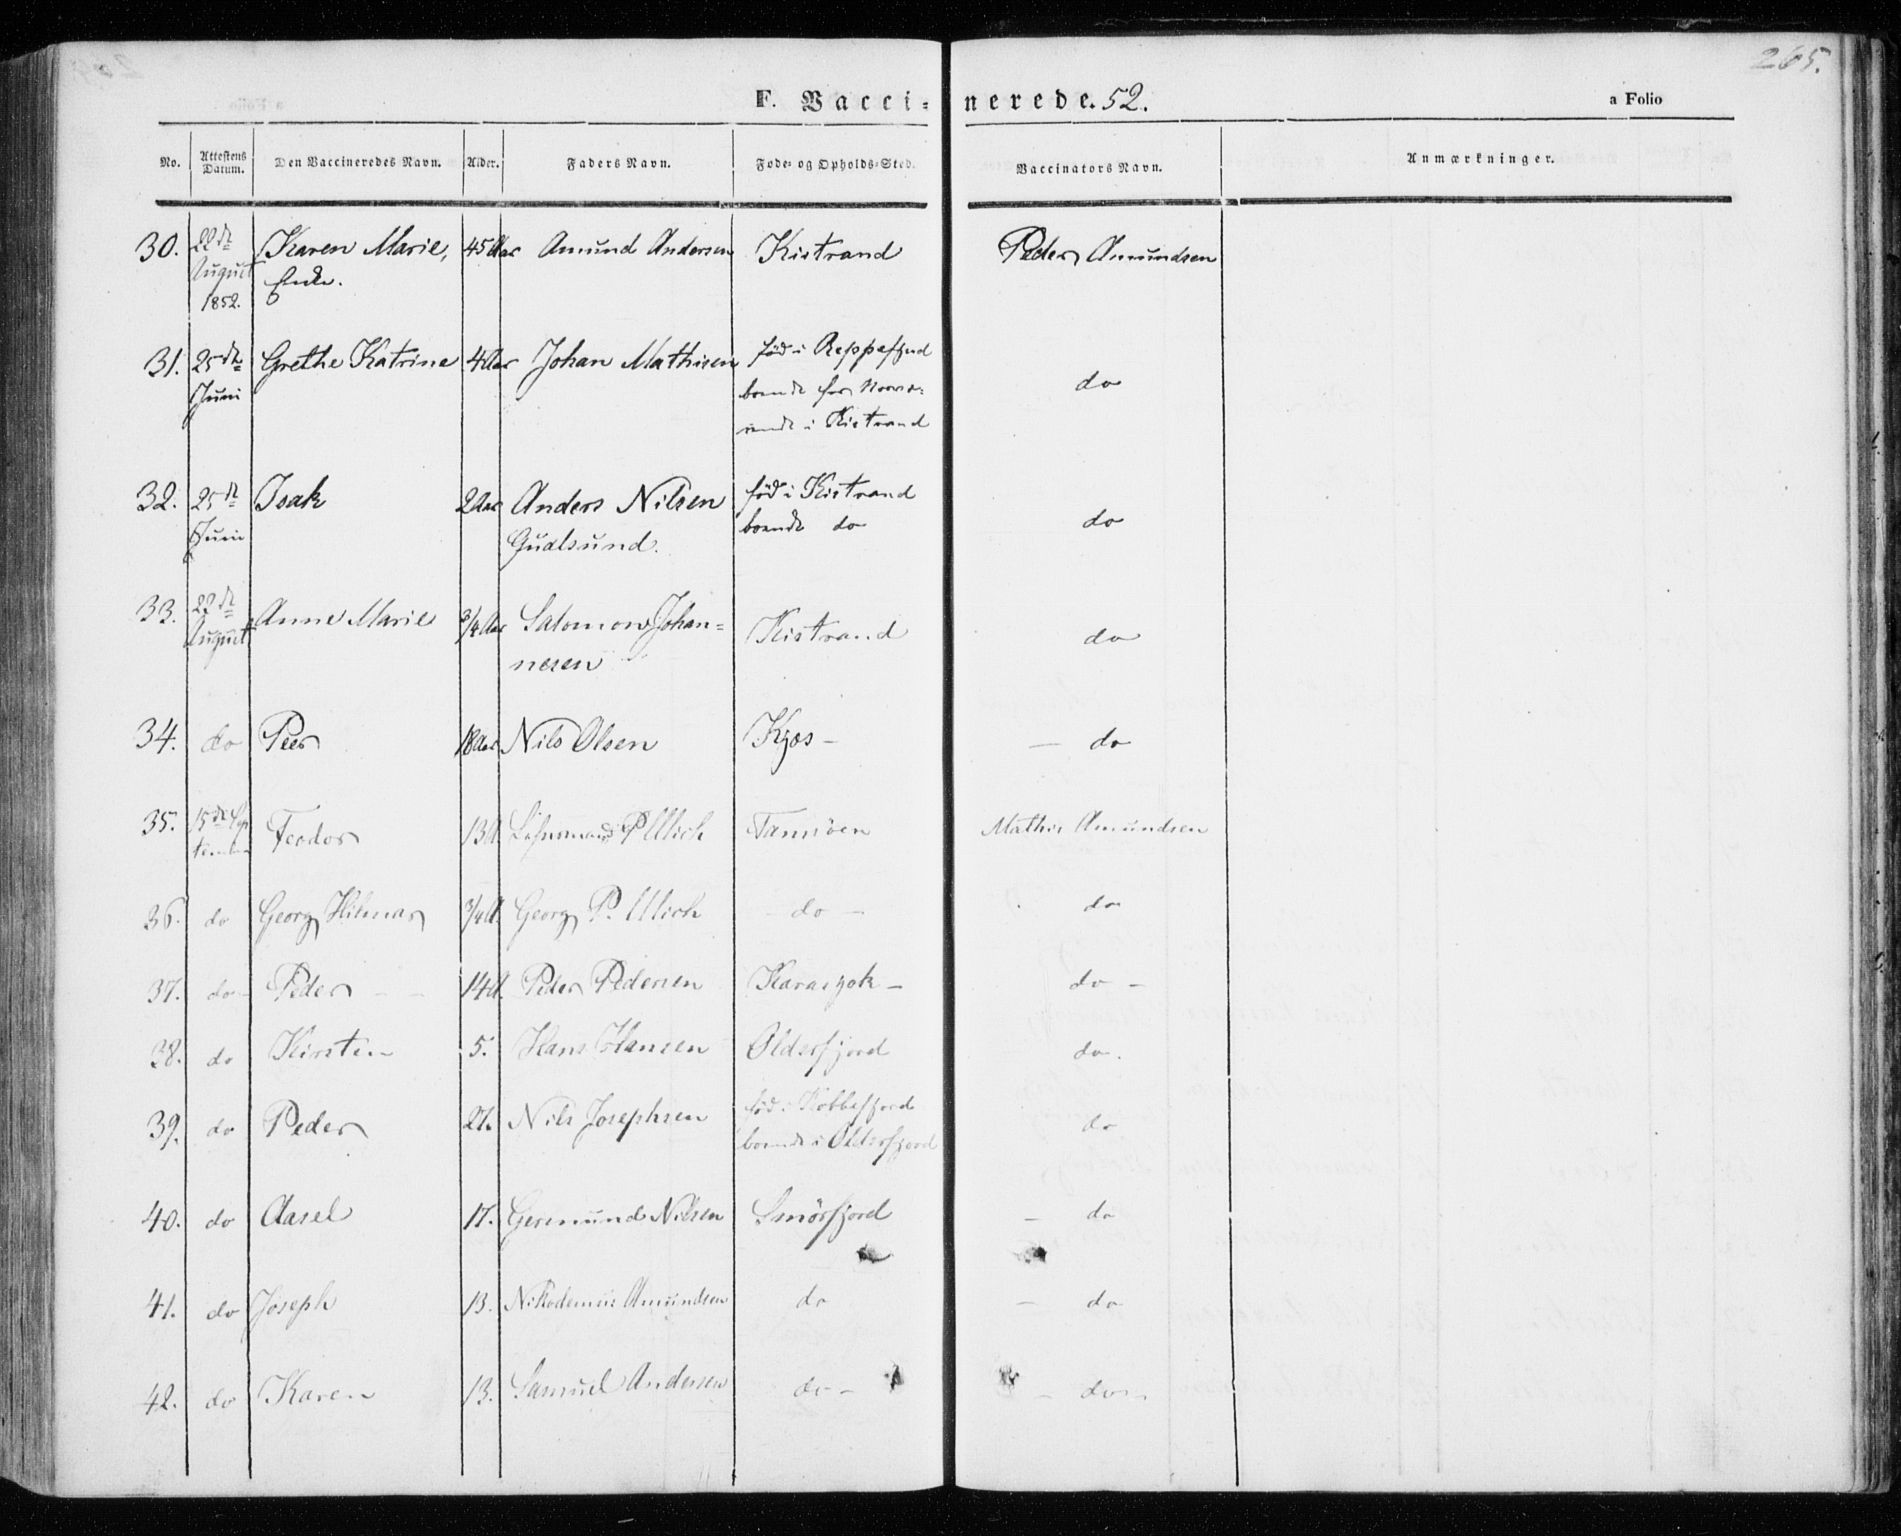 265.
F. Vacci=nerede. 52. a Folio
No. Attestens Datum. Den Vaccineredes Navn. Alder. Faders Navn. Føde- og Opholds-Sted. Vaccinators Navn. Anmærkninger.
30. 22de August 1852. Karen Marie, Enke. 45 Aar Amund Andersen Kistrand Peder Amundsen
31. 25de Juni Grethe Katrine 4 Aar Johan Mathisen
fød i Reppefjord
boende for Nærvæ-
rende i Kistrand
do
32. 25de Juni Isak 2 Aar Anders Nilsen
Gudlsund.
fød i Kistrand
boende do
do
33. 22de August Anne Marie 3/4 Aar Salomon Johan=
nesen
Kistrand do
34. do Peer 18 Aar Nils Olsen Kjæs - - do
35. 15de Sep
tember
Feodor 13 A. Lehnsmand P Ulich Tamsöen Mathis Amundsen
36. do Georg Hilmar 3/4 A. Georg P. Ulich - do - do
37. do - Peder - - 14 A. Peder Pedersen Karasjok - do -
38. do Kirsten 5. Hans Hansen Oldersfjord do.
39. do Peder 21. Nils Josephsen
fød i Kobbefjord
boende i Oldersfjord
do
40. do Aasel 17. Germund Nilsen Smörfjord - do
41. do Joseph 13. Nikodemus Amundsen do - do
42. do Karen 13. Samuel Andersen do - - do -